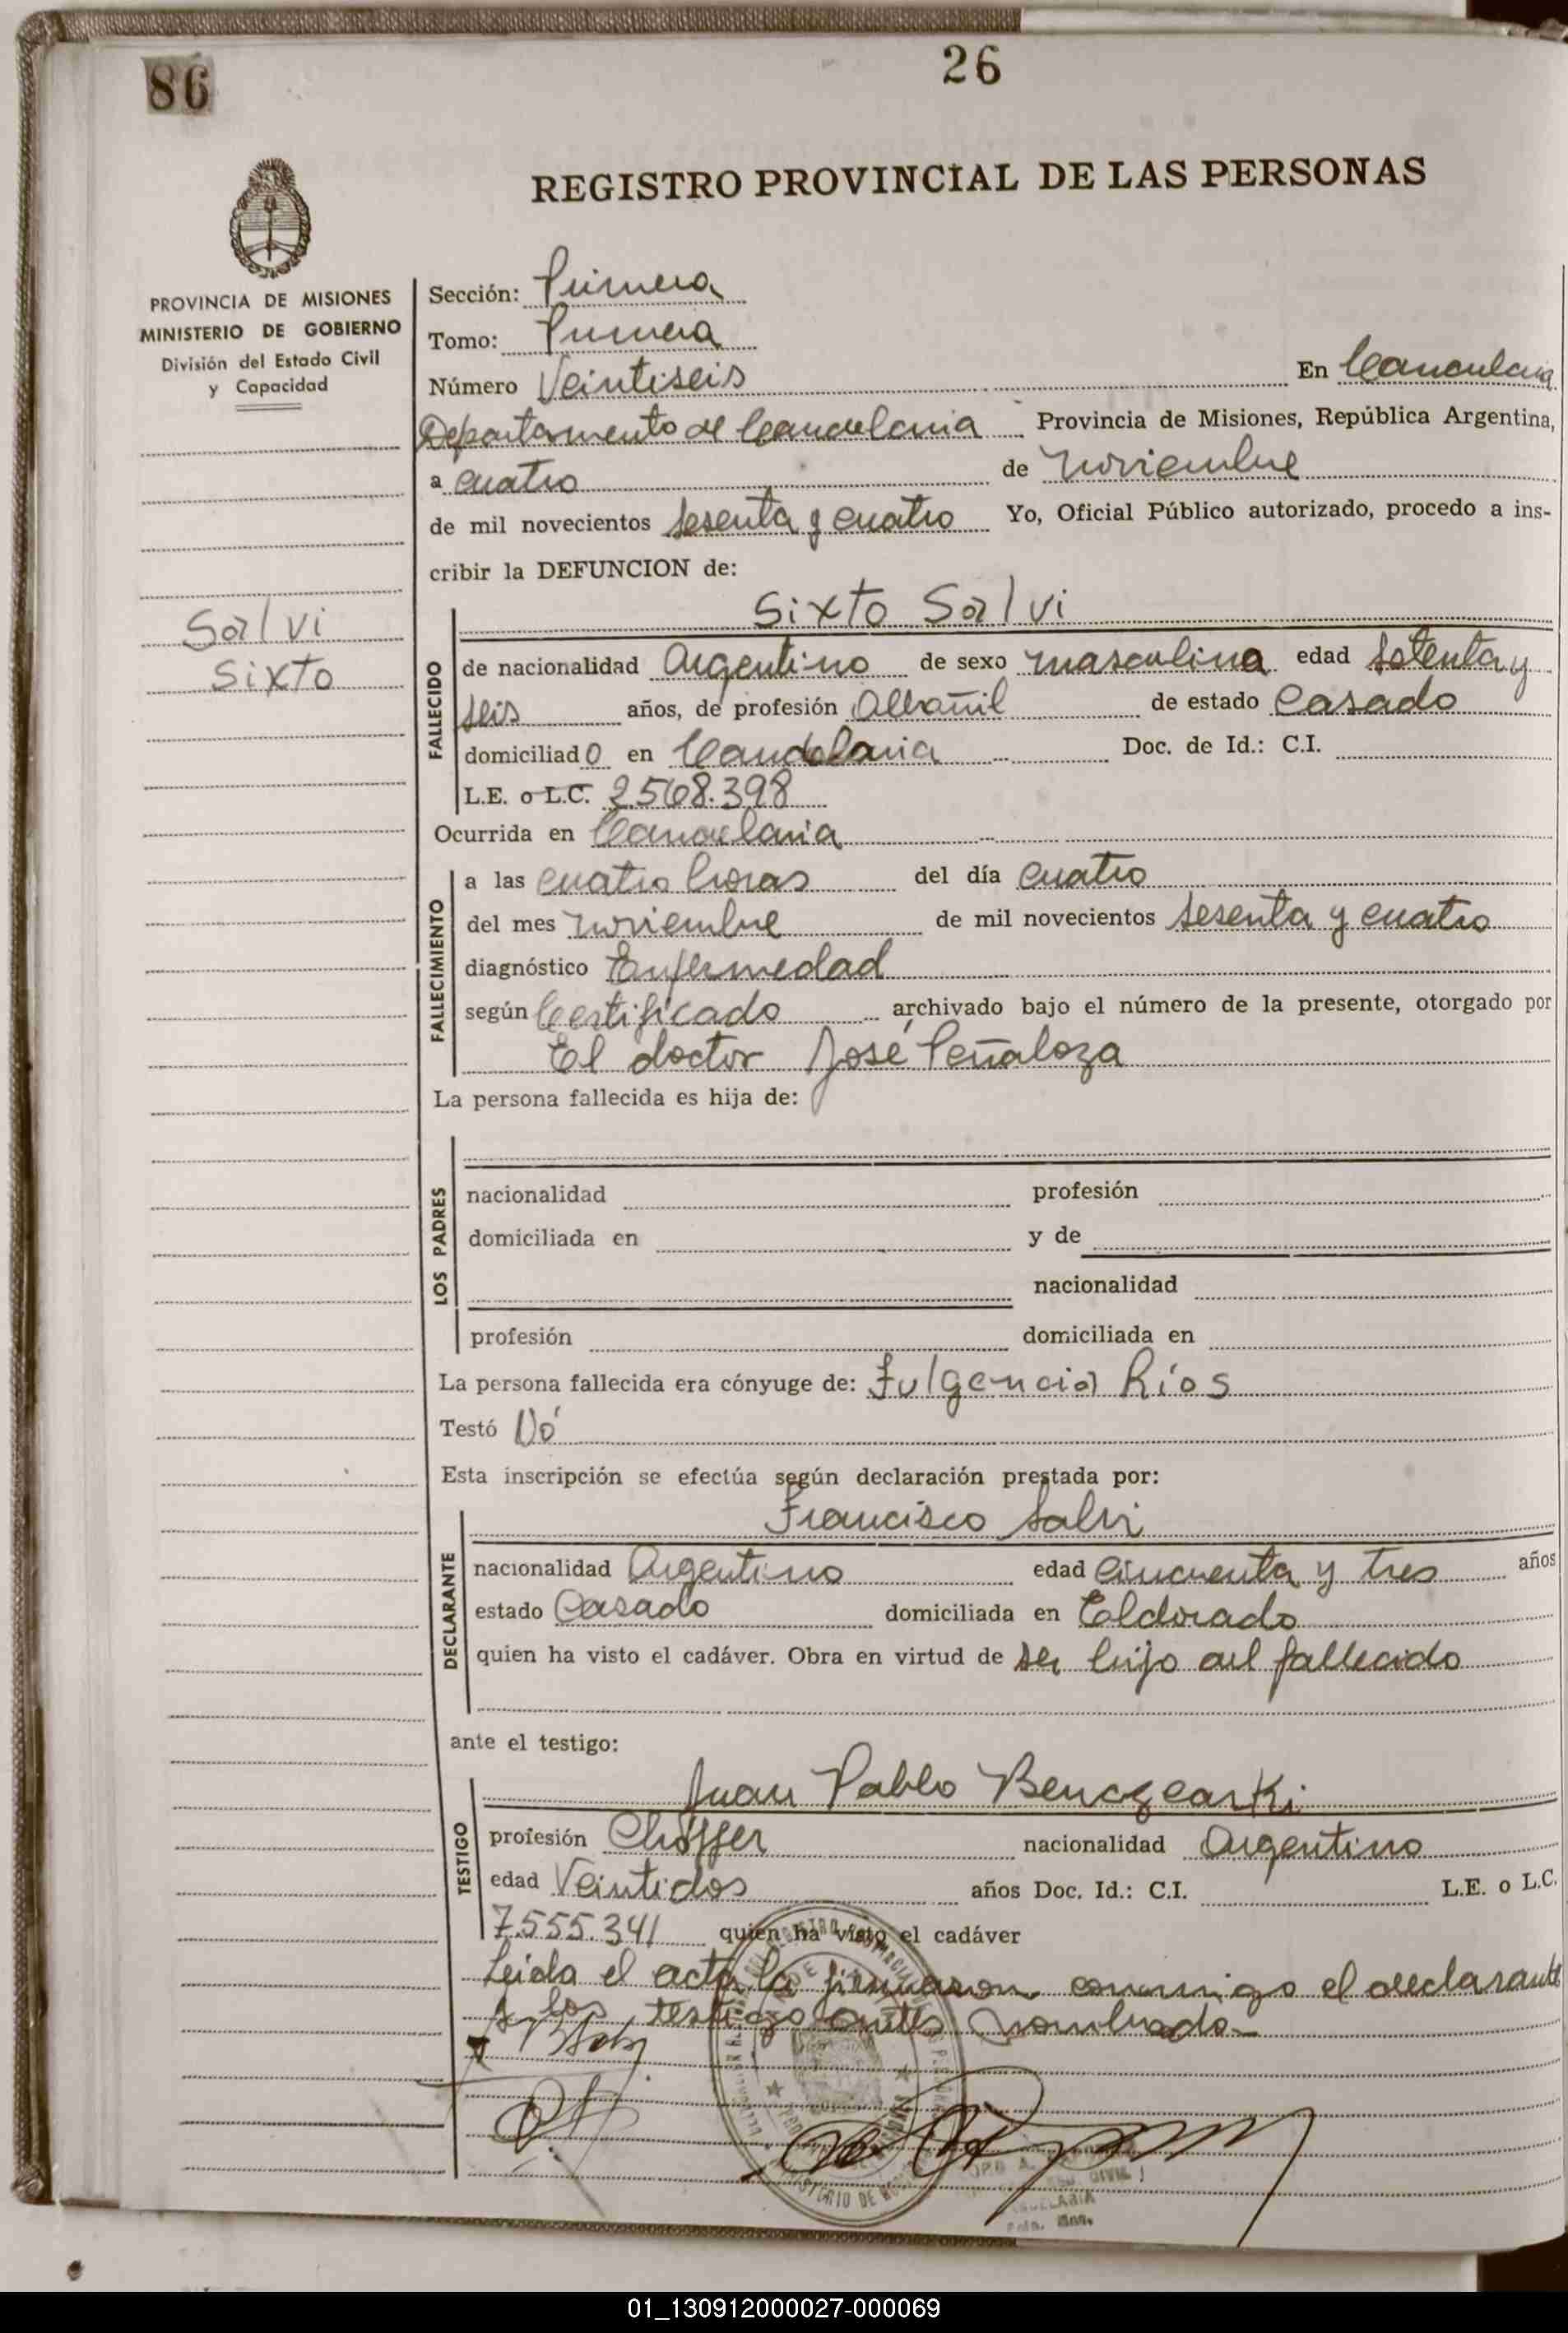 86
26
REGISTRO PROVINCIAL DE LAS PERSONAS
PROVINCIA DE MISIONES
MINISTERIO DE GOBIERNO
División del Estado Civil
y Capacidad
Sección: Primera
Tomo: Primera
Número Veintiseis En Candelaria
Departamento de Candelaria Provincia de Misiones, República Argentina,
a cuatro de noviembre
de mil novecientos sesenta y cuatro Yo, Oficial Público autorizado, procedo a ins-
cribir la DEFUNCION de:
Salvi
Sixto
FALLECIDO
Sixto Salvi
de nacionalidad Argentino de sexo masculino edad setenta y
seis años, de profesión Albañil de estado Casado
domiciliado en Candelaria Doc. de Id.: C.I.
L.E. o L.C. 2.568.398
Ocurrida en Candelaria
FALLECIMIENTO
a las cuatro horas del día cuatro
del mes noviembre de mil novecientos sesenta y cuatro
diagnóstico Enfermedad
según Certificado archivado bajo el número de la presente, otorgado por
El doctor José Peñaloza
La persona fallecida es hija de:
LOS PADRES
nacionalidad profesión
domiciliada en y de
nacionalidad
profesión domiciliada en
La persona fallecida era cónyuge de: Fulgencia Ríos
Testó Nó
Esta inscripción se efectúa según declaración prestada por:
DECLARANTE
Francisco Salvi
nacionalidad Argentino edad cincuenta y tres años
estado Casado domiciliada en Eldorado
quien ha visto el cadáver. Obra en virtud de ser hijo del fallecido
ante el testigo:
TESTIGO
Juan Pablo Benczearki
profesión Chóffer nacionalidad Argentino
edad Veintidos años Doc. Id.: C.I. L.E. o L.C.
7.555.341 quien ha visto el cadáver
Leida el acta la firmaron conmigo el declarante
y los testigo antes nombrado
01_130912000027-000069